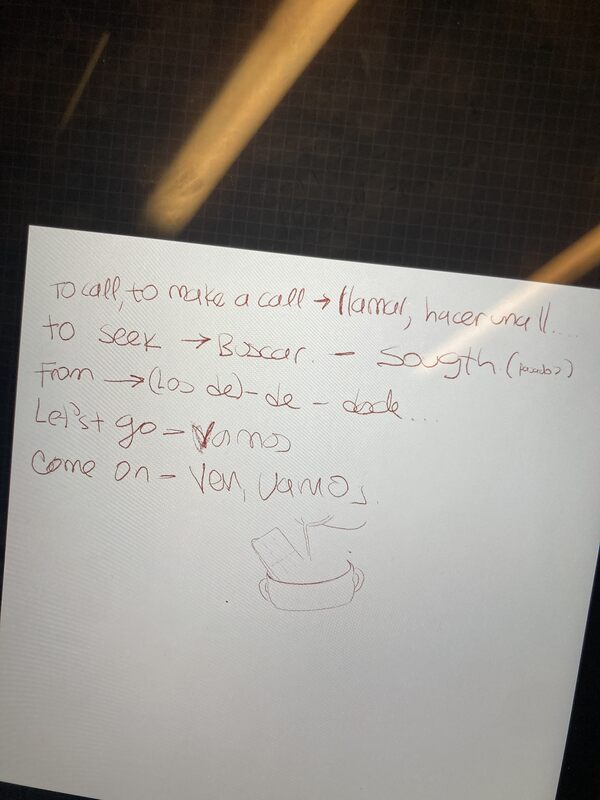 To call, to make a call → llamar, hacer una ll....
to seek → Boscar. - Sougth. (pasado)
From → (Los de) - de - desde...
Let'st go = Vamos
Come on - Ven, Vamos.